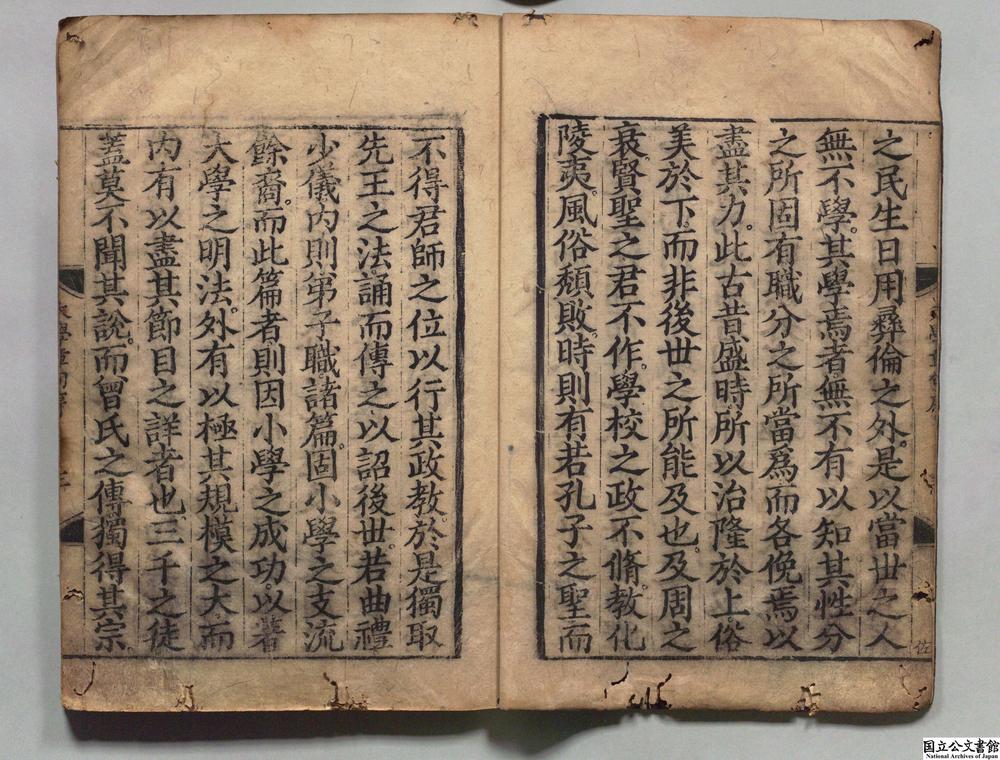 之民生日用彝倫之外。是以當世之人
無不學。其學焉者。無不有以知其性分
之所固有職分之所當爲而各俛焉以
盡其力。此古昔盛時所以治隆於上。俗
美於下。而非後世之所能及也。及周之
衰。賢聖之君不作。學校之政不脩。教化
陵夷。風俗頹敗。時則有若孔子之聖而
不得君師之位以行其政教。於是獨取
先王之法誦而傳之以詔後世。若曲禮
少儀內則弟子職諸篇。固小學之支流
餘裔。而此篇者則因小學之成功。以著
大學之明法。外有以極其規模之大。而
內有以盡其節目之詳者也。三千之徒
蓋莫不聞其說。而曾氏之傳獨得其宗。
国立公文書館
National Archives of Japan